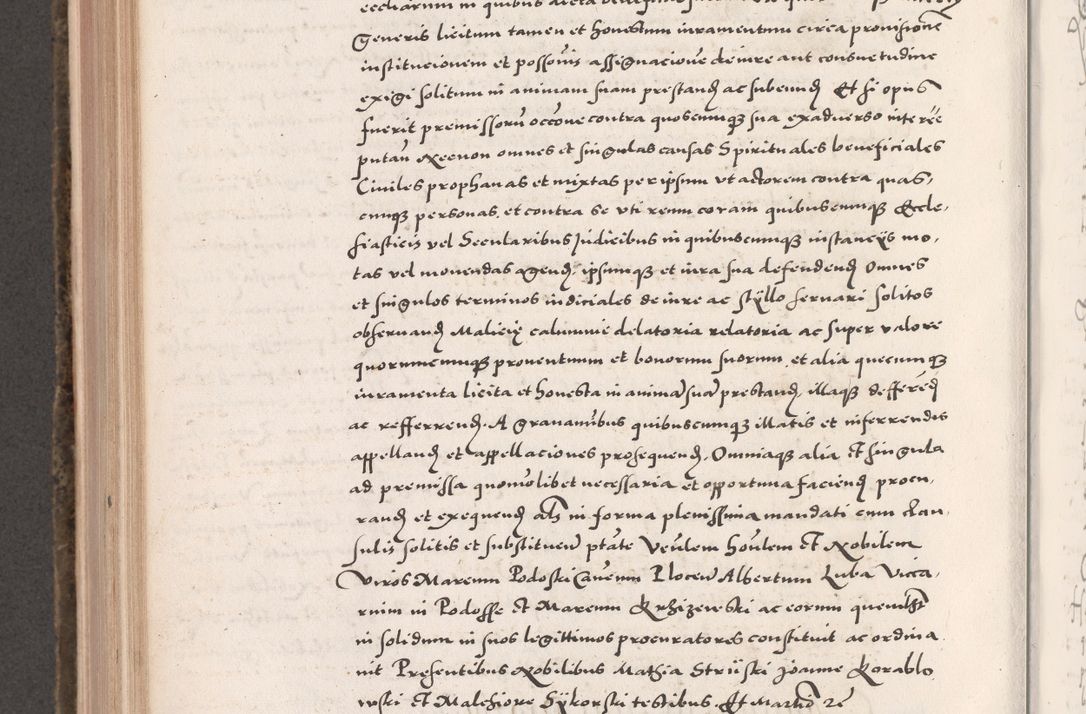 Generis licitum tamen et honestum iuramentum circa provisionē
institucionem et possōnis assignacionē de iure aut consuetudine
exigi solitum in animam suam prestand ac subeund Et si opus
fuerit premissorū occōne contra quoscumq sua ex adverso interēē
putañ ex eo non omnes et singulas causas Spirituales beneficiales
Civiles prophanas et mixtas per ipsum ut actorem contra quas,
cumq personas. et contra se uti reum coram quibuscumq Eccle,
siasticis vel Secularibus Judicibus in quibuscumq instancÿs mo,
tas vel movendas agend, ipsumq et iura sua defendend Omnes
et singulos terminos iudiciales de iure ac stÿllo servari solitos
observand Malicię calumnie delatoria relatoria ac super valore
quorumcumq proventuum et bonorum suorum. et alia quecumq
iuramenta licita et honesta in animā suā prestand, illaq defferēd
ac refferrend. A gravamībus quibuscumq illatis et inferrendis
appelland et appellaciones prosequend. Omniaq alia et singula
ad premissa quomōlibet necessaria et opportuna faciend procu,
rand et exequend als in forma plenissima mandati cum clau,
sulis solitis et substituend ptāte Veñlem hoñlem et Nobilem
Viros Marcum Podoski Cañcum Plocen Albertum Luba Vica,
rium in Podosse et Marcum Krzizewski ac eorum quemlꝫt
in solidum in suos legittimos procuratores constituit ac ordina
nit Presentibus Nobilibus Mathia Strüski Joanne Korablo
wski et Malchiore Sÿkorski testibus. Et Martio re